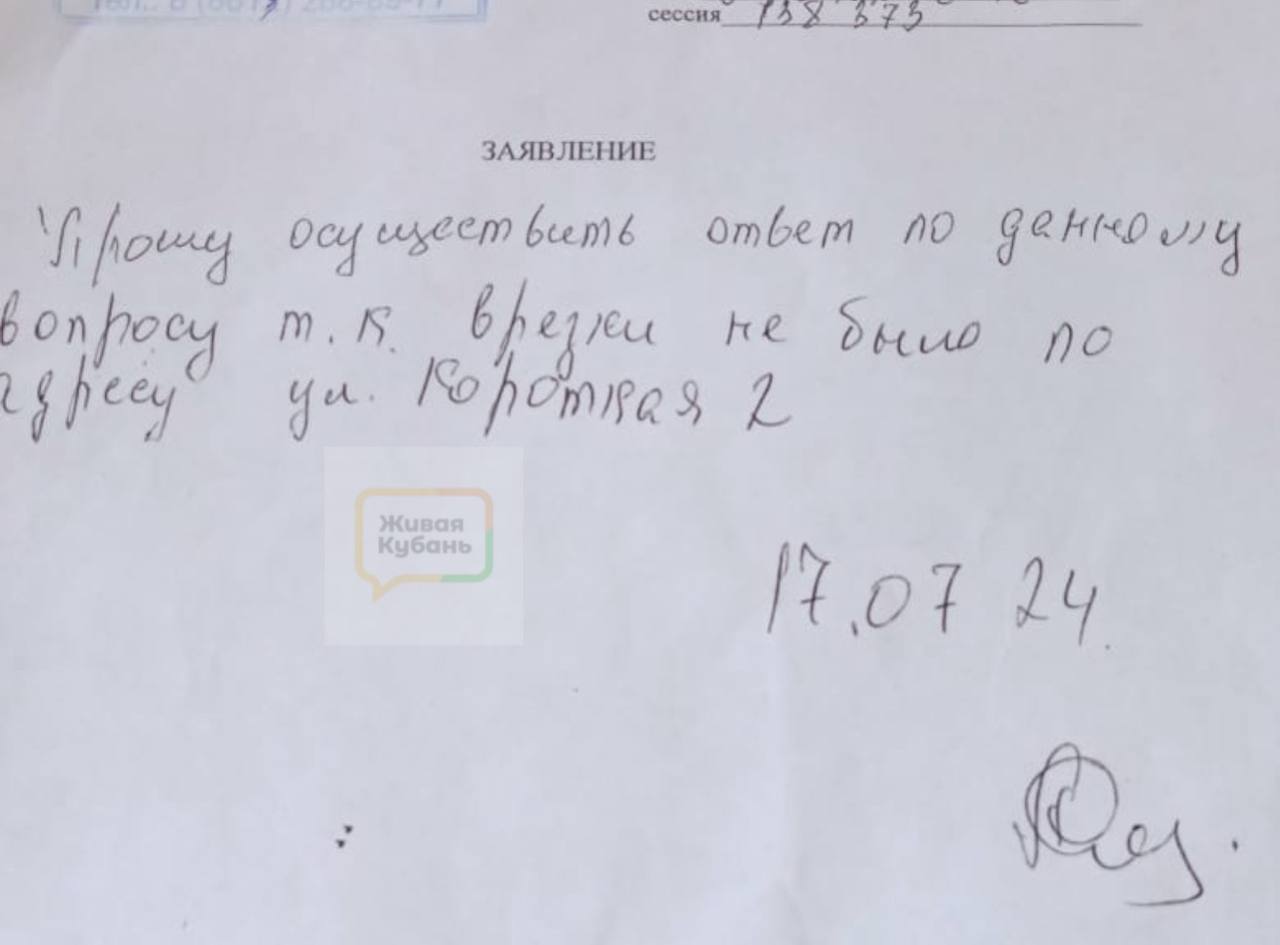 сессия 138 373
ЗАЯВЛЕНИЕ
Прошу осуществить ответ по данному
вопросу т.к. врезки не было по
адресу ул. Короткая 2
Живая
Кубань
17.07 24.